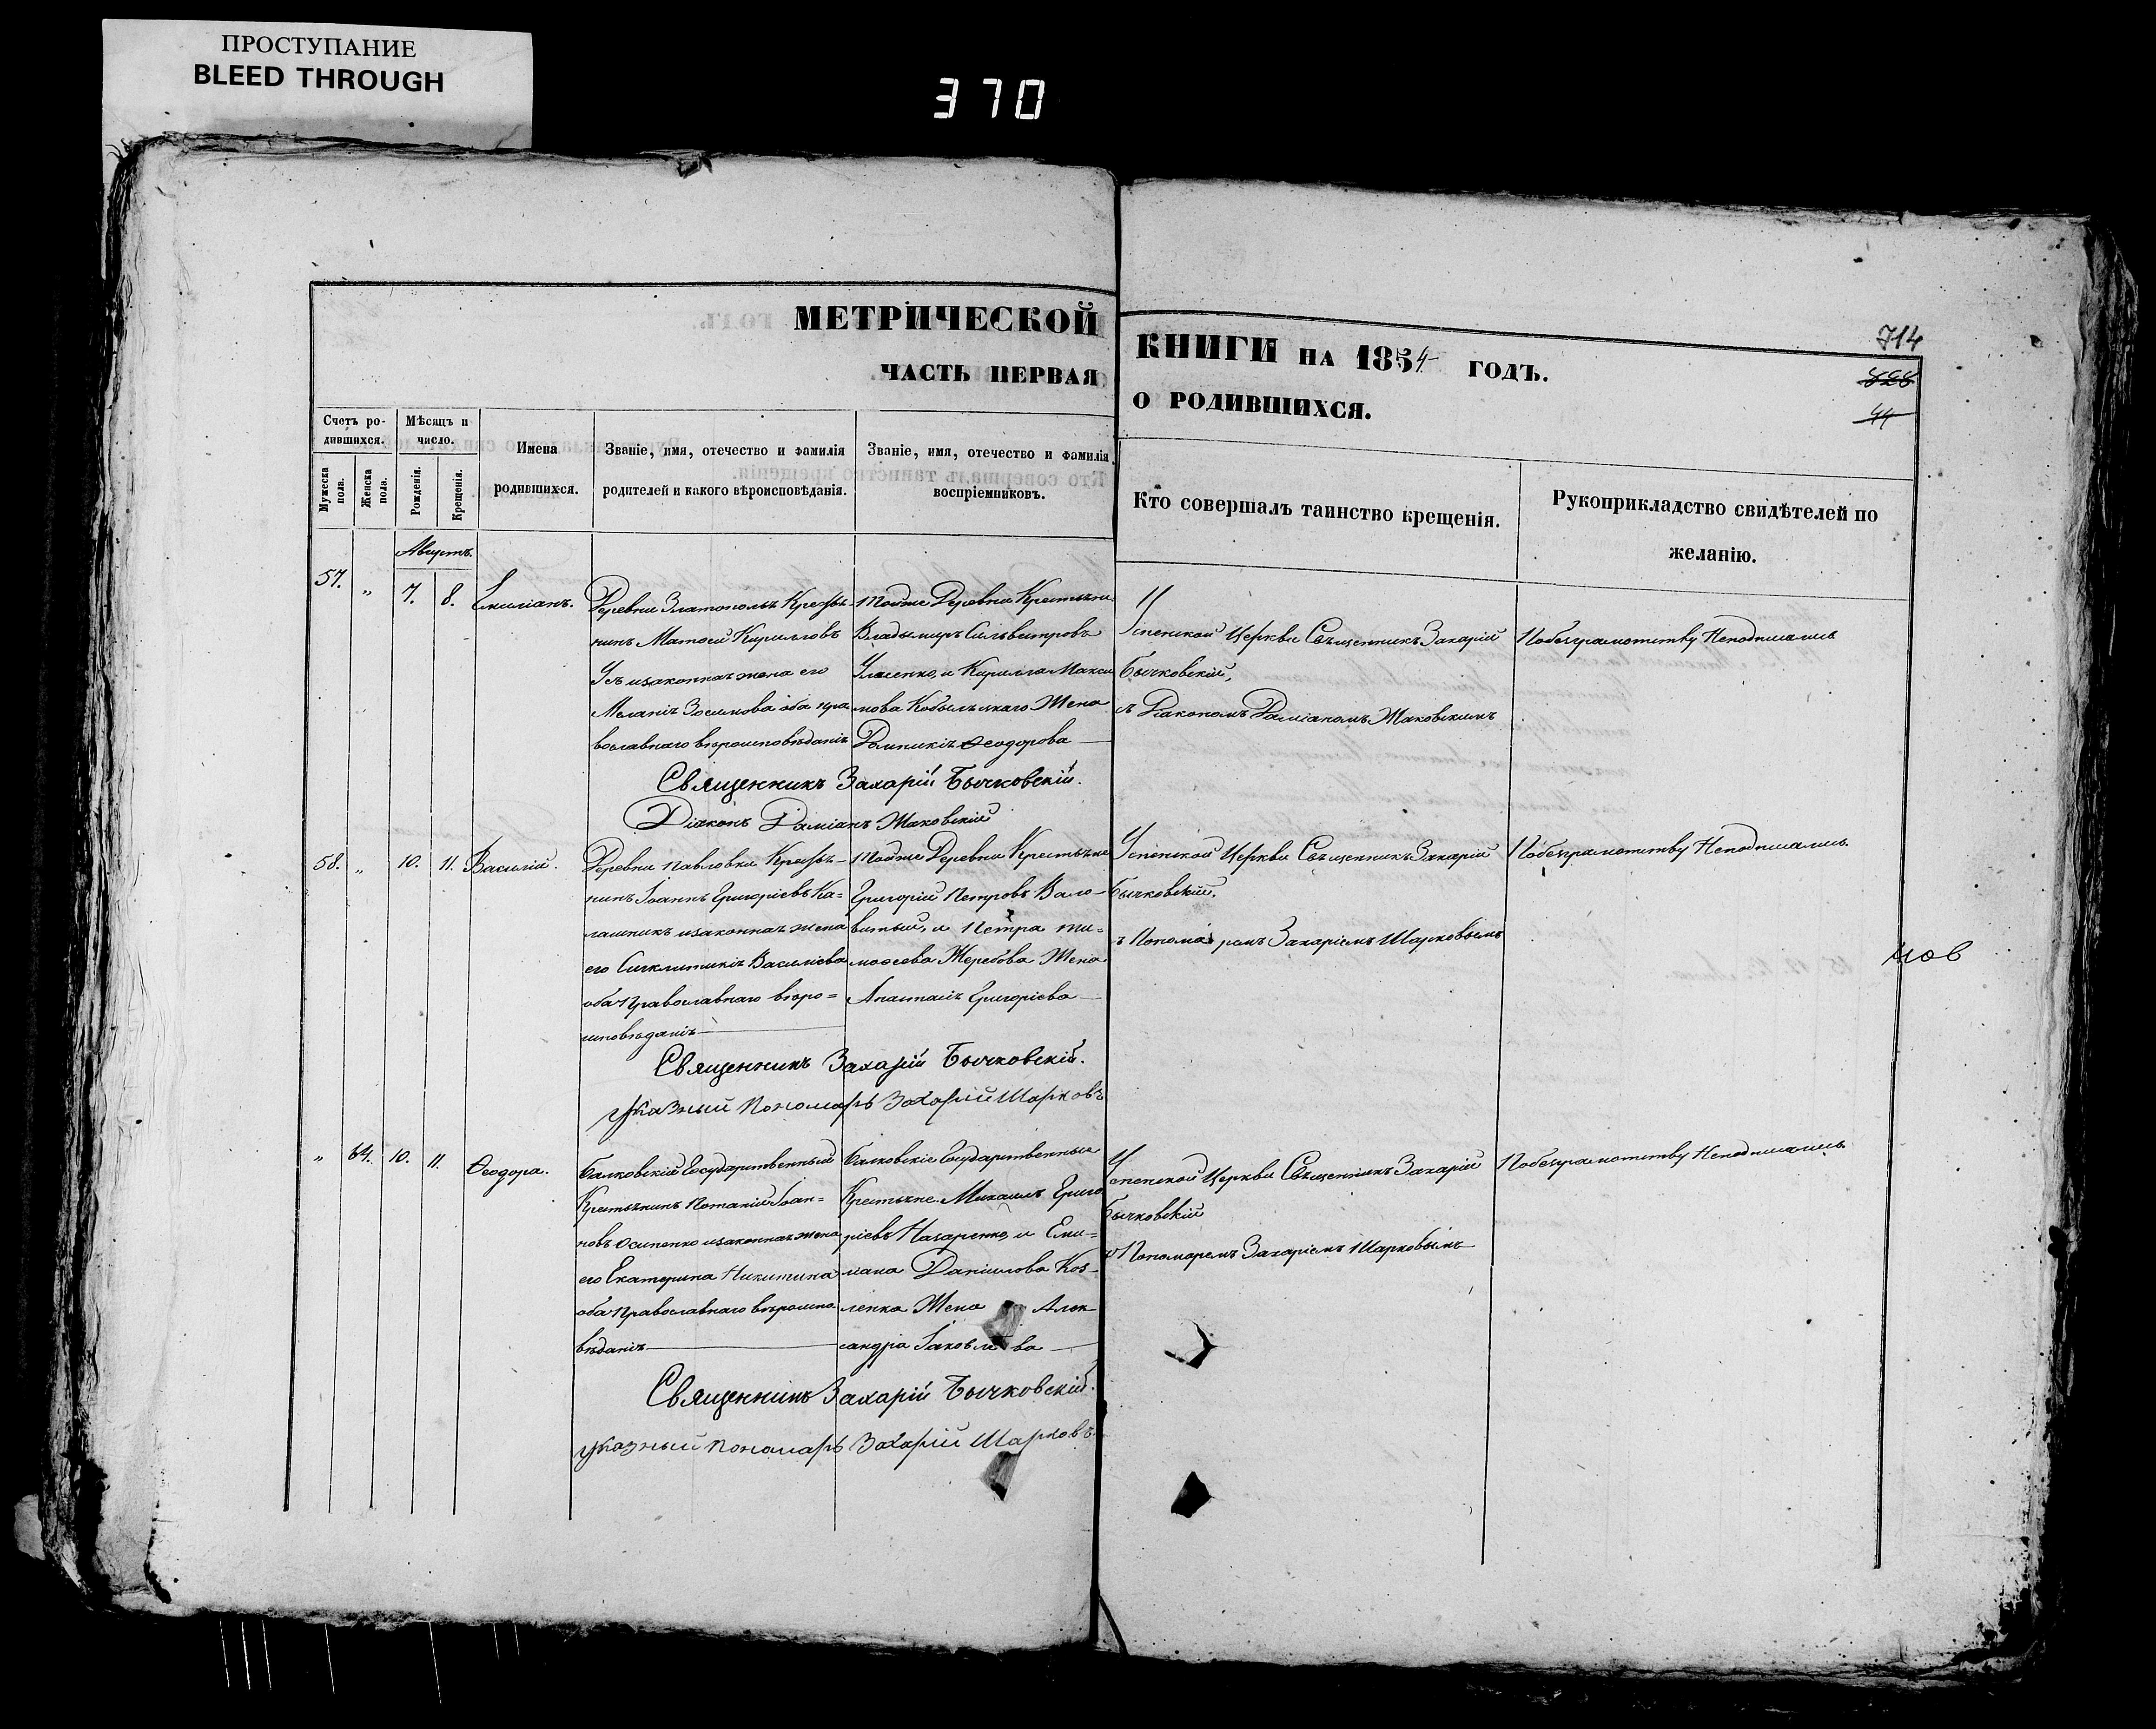 ПРОСТУПАНИЕ
BLEED THROUGH
370
МЕТРИЧЕСКОЙ
ЧАСТЬ ПЕРВАЯ
Счетъ ро-
дившихся.
Мужеска пола.
Женска пола.
Мѣсяцъ и
число.
Рожденія.
Крещенія.
Имена
родившихся.
Званіе, имя, отечество и фамилія
родителей и какого вѣроисповѣданія.
Званіе, имя, отечество и фамилія
воспріемниковъ.
КНИГИ НА 1854 ГОДЪ.
О РОДИВШИХСЯ.
714
828
44
Кто совершалъ таинство крещенія.
Рукоприкладство свидѣтелей по
желанію.
Августъ.
57. „ 7. 8. Емиліанъ.
Деревни Златополь Крестья-
нинъ Матѳей Кирилловъ
Усъ изаконная жена его
Меланія Зосимова оба пра
вославнаго вѣроисповѣданія
Тойже Деревни Крестьяни.
Владымиръ Сильвестровъ
Уласенко, и Кирилла Макси
мова Кобыляцкаго Жена
Домникія Ѳеодорова
Успенской Церкви Священникъ Захарій
Бычковскій,
съ Діакономъ Даміаномъ Маковскимъ
Побезграмотству Неподписались
Священникъ Захарій Бычковскій.
Діаконъ Даміанъ Маковскій
58. „ 10. 11. Василій.
Деревни Павловки Крестья-
нинъ Іоаннъ Григоріевъ Ка=
лашникъ изаконная жена
его Сигклитикія Василіева
оба Православнаго вѣро=
исповѣданія
Тойже Деревни Крестьяне
Григорій Петровъ Вало-
витый, и Петра Ти=
моѳеева Жеребова Жена
Анастасія Григоріева
Успенской Церкви Священникъ Захарій
Бычковскій.
съ Пономаремъ Захаріемъ Шарковымъ
Побезграмотству Неподписались.
нов
Священникъ Захарій Бычковскій.
указный Пономарь Захарій Шарковъ
„ 64. 10. 11. Ѳеодора.
Балковскій Государственный
Крестьянинъ Потапій Іоан=
новъ Осипенко изаконная жена
его Екатерина Никитина
оба Православнаго вѣроиспо
вѣданія
Балковскіе Государственные
Крестьяне Михаилъ Григо
ріевъ Назаренко, и Еми=
ліана Даніилова Коз-
ленка Жена Алек
сандра Іаковлева
Успенской Церкви Священникъ Захарій
Бычковскій
съ Пономаремъ Захаріемъ Шарковымъ
Побезграмотству Неподписались
Священникъ Захарій Бычковскій.
указный пономарь Захарій Шарковъ